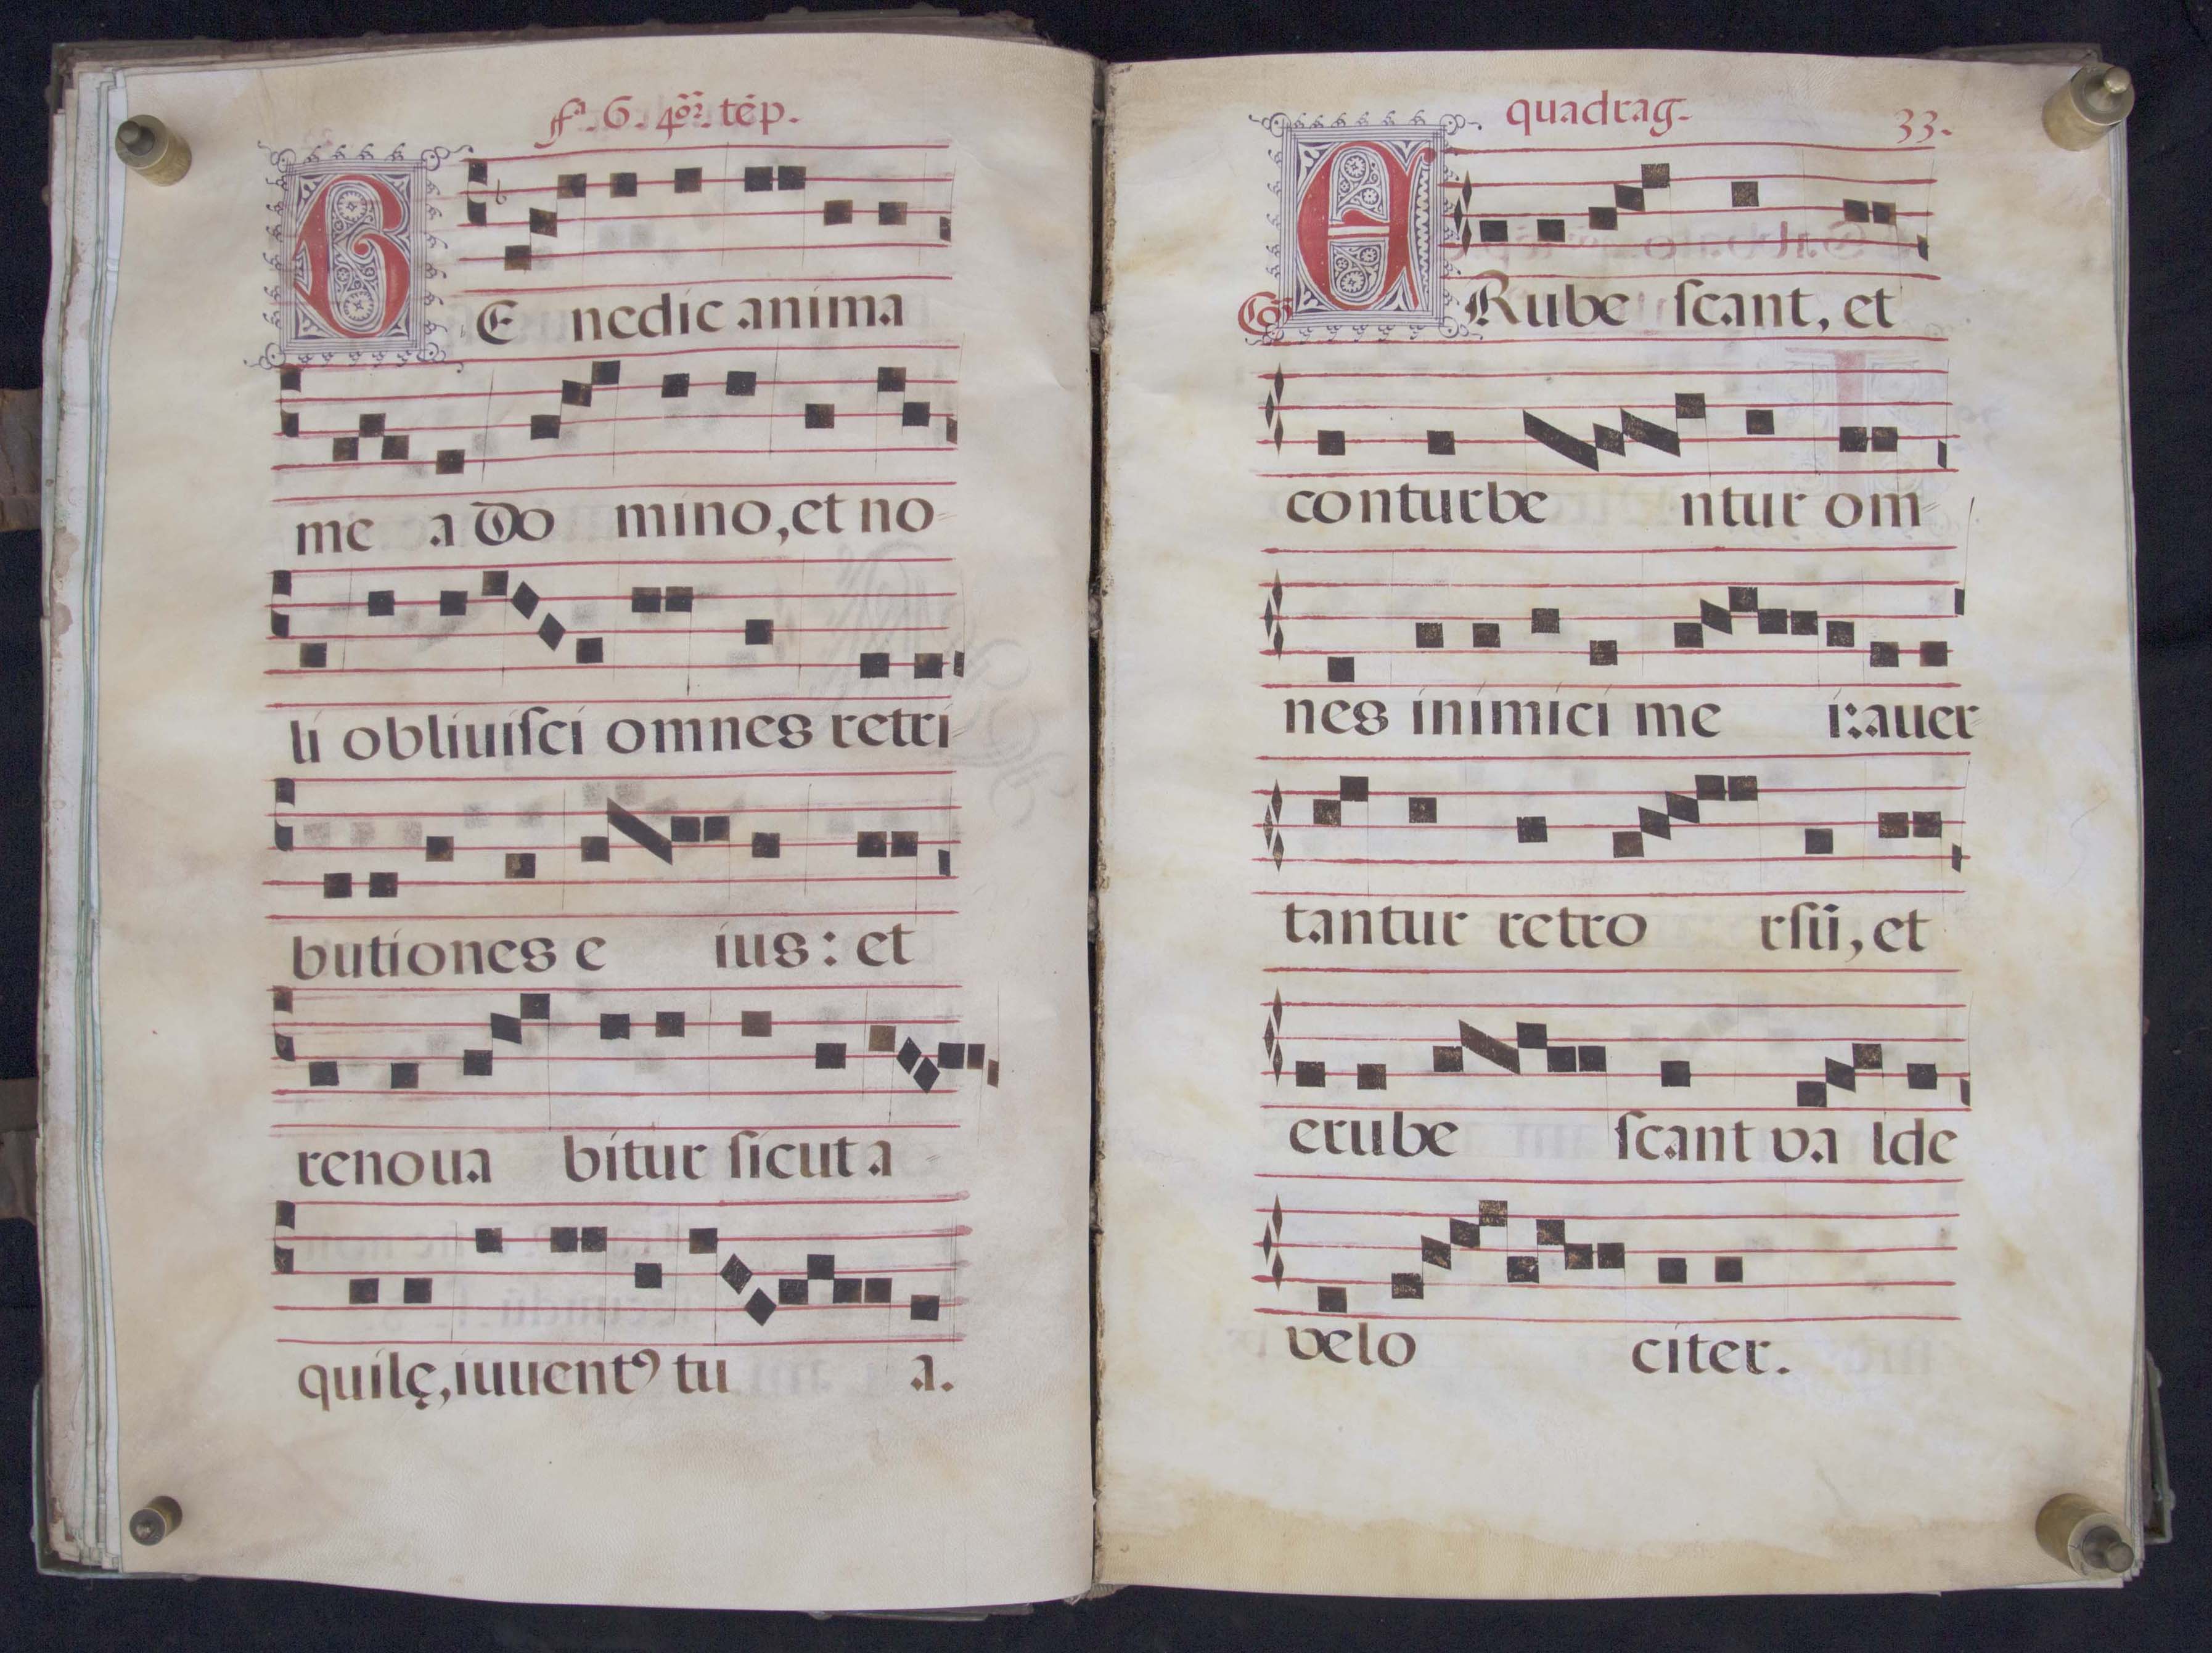 fª. 6. 4oꝝ. tẽp.
BE nedic anima
me a Do mino, et no-
li obliuiſci omnes retri
butiones e ius: et
renoua bitur ſicut a-
quilę, iuuentꝰ tu a.
quadrag. 33.
Cõ ERube ſcant, et
conturbe ntur om-
nes inimici me i: auer-
tantur retro rſũ, et
erube ſcant va lde
velo citer.